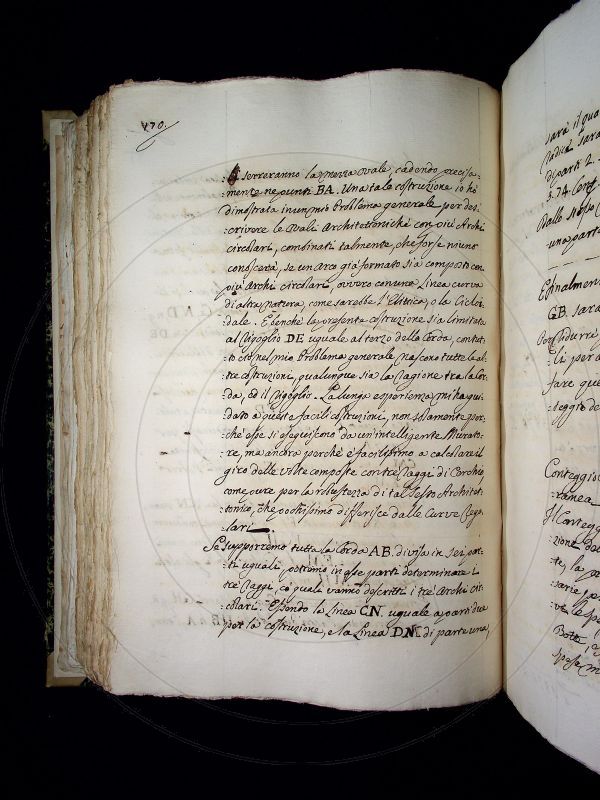 170.
:serreranno la mezza ovale, cadendo precisa=
:mente ne punti BA. Una tale costruzione io hò
dimostrata in un mio Problema generale per des=
:crivere le Ovali Architettoniche con più Archi
circolari, combinati talmente, che forse niuno
conoscerà, se un arco già formato sia composto con
più Archi circolari, ovvero con una Linea curva
di altra natura, come sarebbe l'Elittica, o la Cicloi=
:dale. E benchè la presente costruzione sia limitata
al Rigoglio DE uguale al terzo della Corda, contut=
to ciò nel mio Problema generale nascono tutte le al=
:tre costruzioni, qualunque sia la ragione tra la Cor=
:da, ed il Rigoglio. La lunga esperienza mi hà gui=
:dato a queste facili costruzioni, non solamente per=
:chè esse si eseguiscono da un'intelligente Murato=
:re, ma ancora perchè è facilissimo a calcolare il
giro delle volte composte con trè raggi di Cerchio,
come pure per la robustezza di tal Sesto Architet=
:tonico, che pochissimo differisce dalle Curve Rego=
:lari.
Se supporremo tutta la Corda AB. divisa in sei par=
:ti uguali, potremo in esse parti determinare i
trè raggi, co' quali vanno descritti i trè Archi cir=
:colari. Essendo la linea CN. uguale a parti due
per la costruzione, e la Linea DN. di parte una,
sarà il quo
radice sarà
di parti 2.
una parte
GB. sarà
fare que
Conteggio